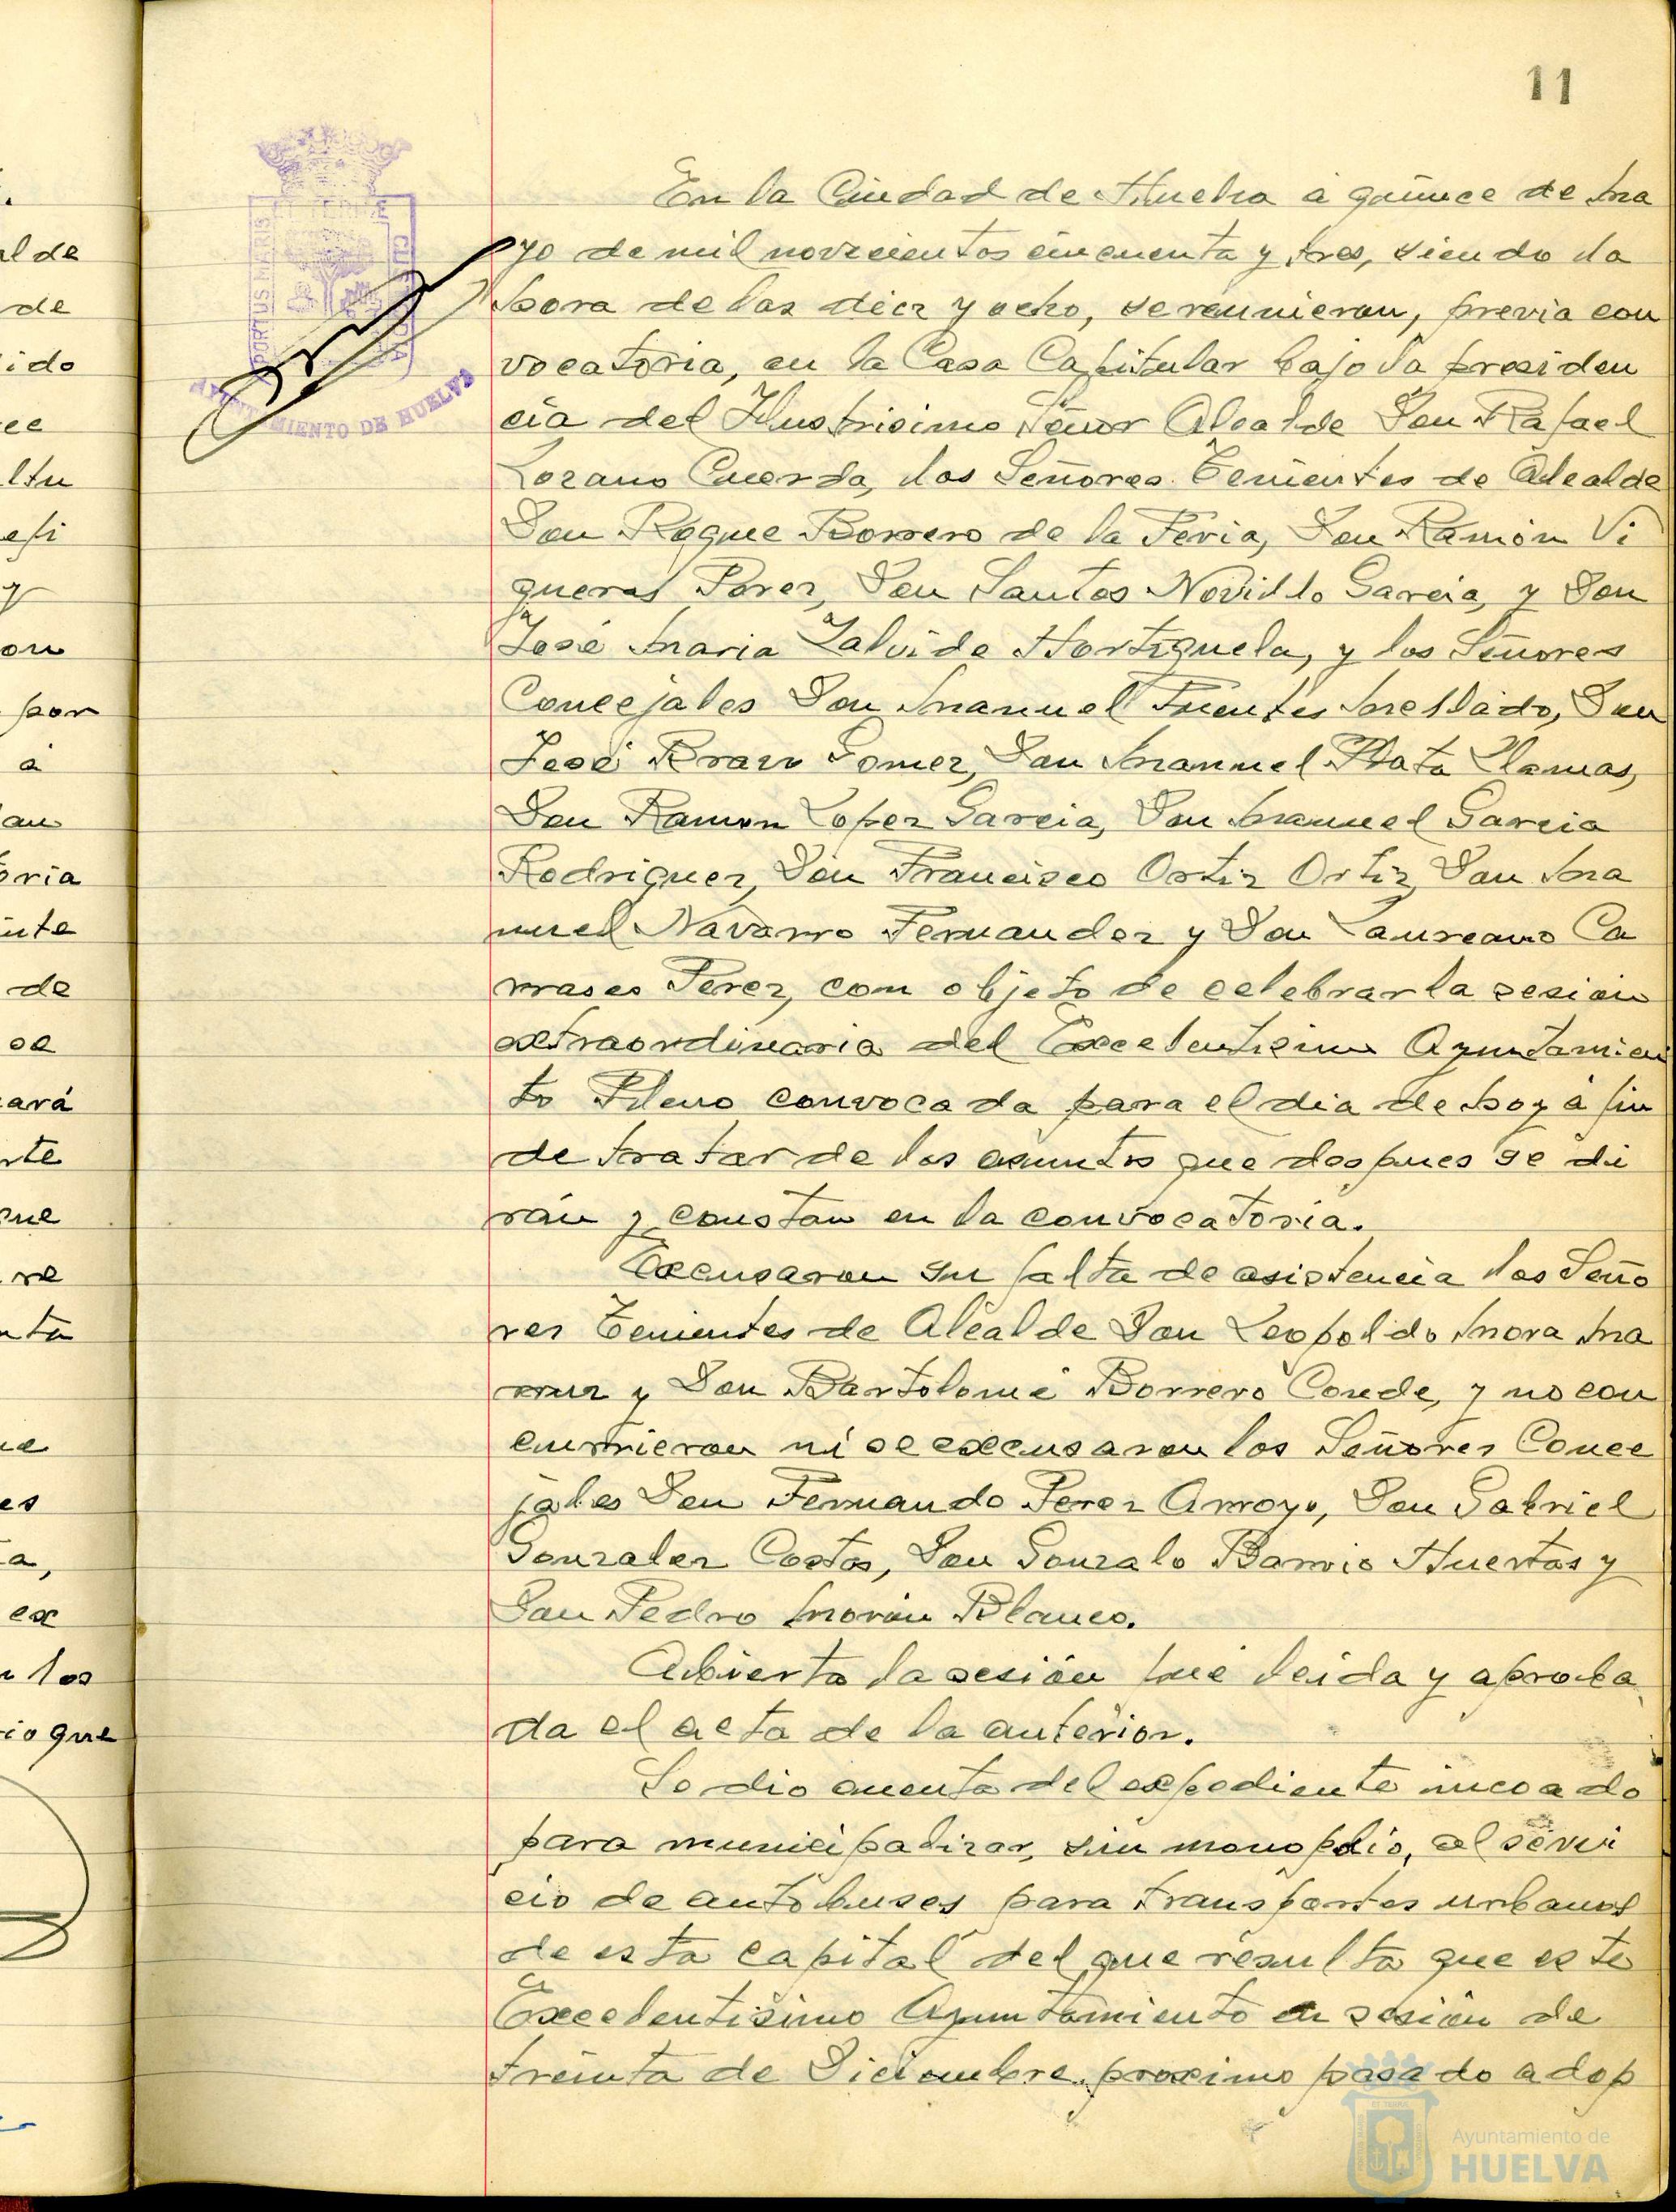 11
En la Ciudad de Huelva á quince de Ma
yo de mil novecientos cincuenta y tres, siendo la
hora de las diez y ocho, se reunieron, previa con
vocatoria, en la Casa Capitular bajo la presiden
cia del Ilustrisimo Señor Alcalde Don Rafael
Lozano Cuerda, los Señores Tenientes de Alcalde
Don Roque Borrero de la Feria, Don Ramón Vi
gueras Perez, Don Santos Novillo Garcia, y Don
José Maria Zalvide Hortiguela, y los Señores
Concejales Don Manuel Fuentes Mellado, Don
José Bravo Gomez, Don Manuel Plata Llamas,
Don Ramon Lopez Garcia, Don Manuel Garcia
Rodriguez, Don Francisco Ortiz Ortiz, Don Ma
nuel Navarro Fernandez y Don Laureano Ca
rrases Perez, con objeto de celebrar la sesión
extraordinaria del Excelentisimo Ayuntamien
to Pleno convocada para el dia de hoy á fin
de tratar de los asuntos que despues se di
rán y constan en la convocatoria.
Excusaron su falta de asistencia los Seño
res Tenientes de Alcalde Don Leopoldo Mora Ma
rruz y Don Bartolomé Borrero Conde, y no con
currieron ni se excusaron los Señores Conce
jales Don Fernando Perez Arroyo, Don Gabriel
Gonzalez Costas, Don Gonzalo Barrio Huertas y
Don Pedro Morón Blanco.
Abierta la sesión fué leida y aproba
da el acta de la anterior.
Se dio cuenta del expediente incoado
para municipalizar, sin monopolio, el servi
cio de autobuses para transportes urbanos
de esta capital del que resulta que este
Excelentisimo Ayuntamiento en sesión de
treinta de Diciembre proximo pasado adop
PORTUS MARIS ET TERRE CUSTODIA
AYUNTAMIENTO DE HUELVA
al de
de
ido
ce
ltu
efi
y
on
por
á
an
oria
inte
de
se
ará
rte
que
re
nta
es
a,
ex
los
io que
Ayuntamiento de
HUELVA